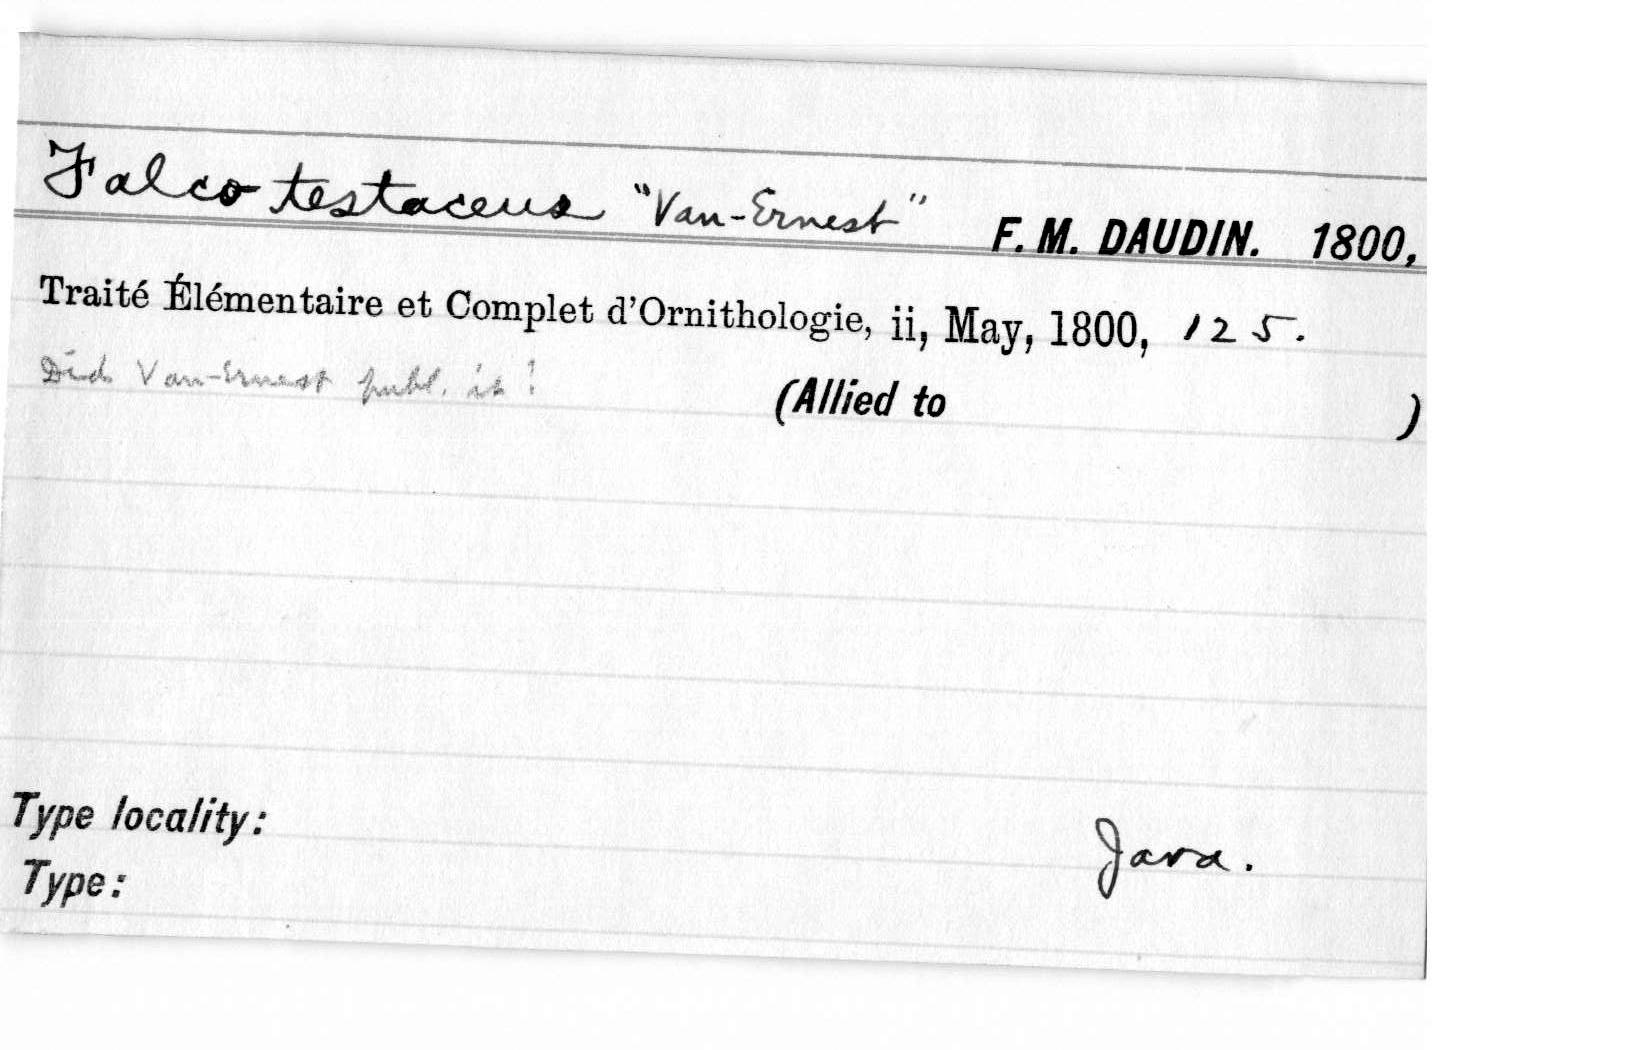 Falco testaceus "Van-Ernest" F. M. DAUDIN. 1800,
Traité Élémentaire et Complet d'Ornithologie, ii, May, 1800, 125.
Did Van-Ernest publ. it?
(Allied to )
Type locality: Java.
Type: